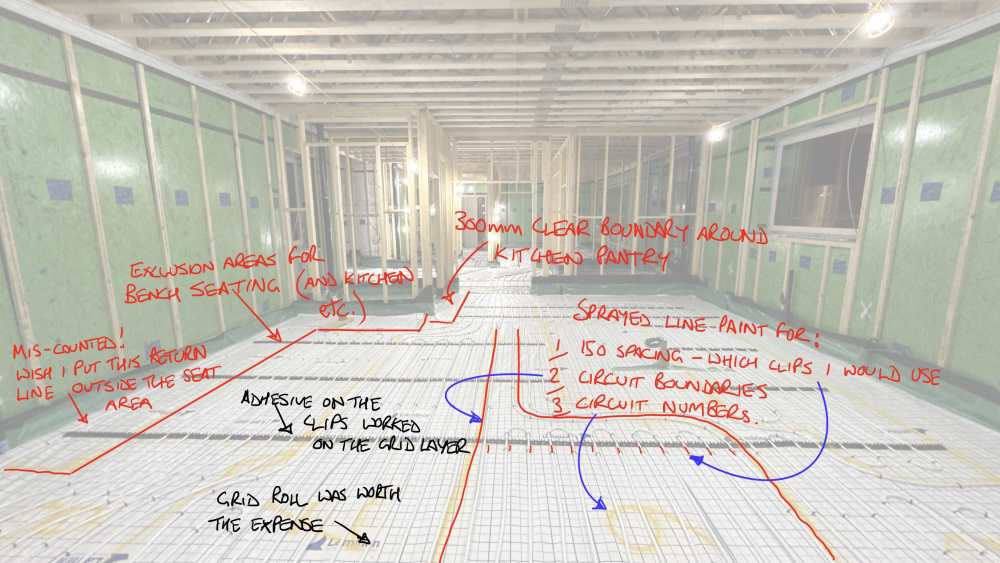 300mm CLEAR BOUNDARY AROUND
KITCHEN PANTRY
EXCLUSION AREAS FOR
BENCH SEATING (AND KITCHEN
ETC.)
SPRAYED LINE-PAINT FOR:
1 150 SPACING - WHICH CLIPS I WOULD USE
2 CIRCUIT BOUNDARIES
3 CIRCUIT NUMBERS.
MIS-COUNTED!
WISH I PUT THIS RETURN
LINE OUTSIDE THE SEAT
AREA
ADHESIVE ON THE
CLIPS WORKED
ON THE GRID LAYER
GRID ROLL WAS WORTH
THE EXPENSE